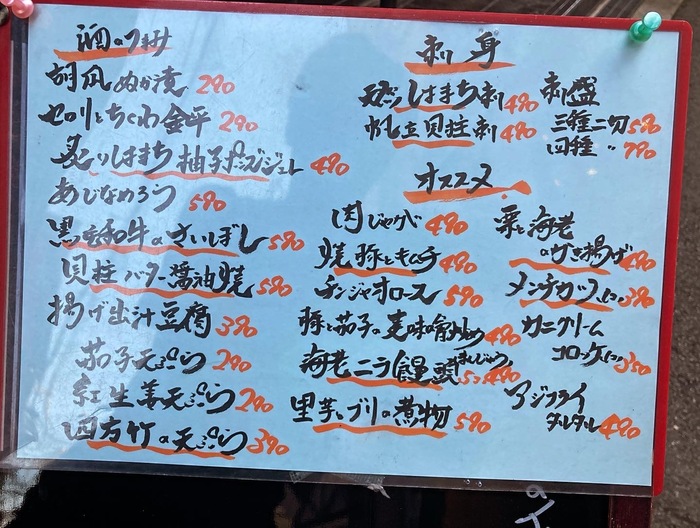 酒の
胡瓜ぬか漬 290
セロリとちくわ金平 290
炙りはまち柚子ポンズジュレ 490
あじなめろう 590
黒毛和牛のさいぼし 590
貝柱バター醤油焼 590
揚げ出汁豆腐 390
茄子天ぷら 290
紅生姜天ぷら 290
四方竹の天ぷら 390
刺身
はまち刺 490
帆立貝柱刺 490
刺盛
三種二切 590
四種 〃 790
オススメ
肉じゃが 490
焼豚とキムチ 490
チンジャオロース 590
豚と茄子の麦味噌炒め 490
海老ニラ饅頭 まんじゅう 490
里芋とブリの煮物 590
栗と海老
のかき揚げ 490
メンチカツ 390
カニクリーム
コロッケ 350
アジフライ
タルタル 490